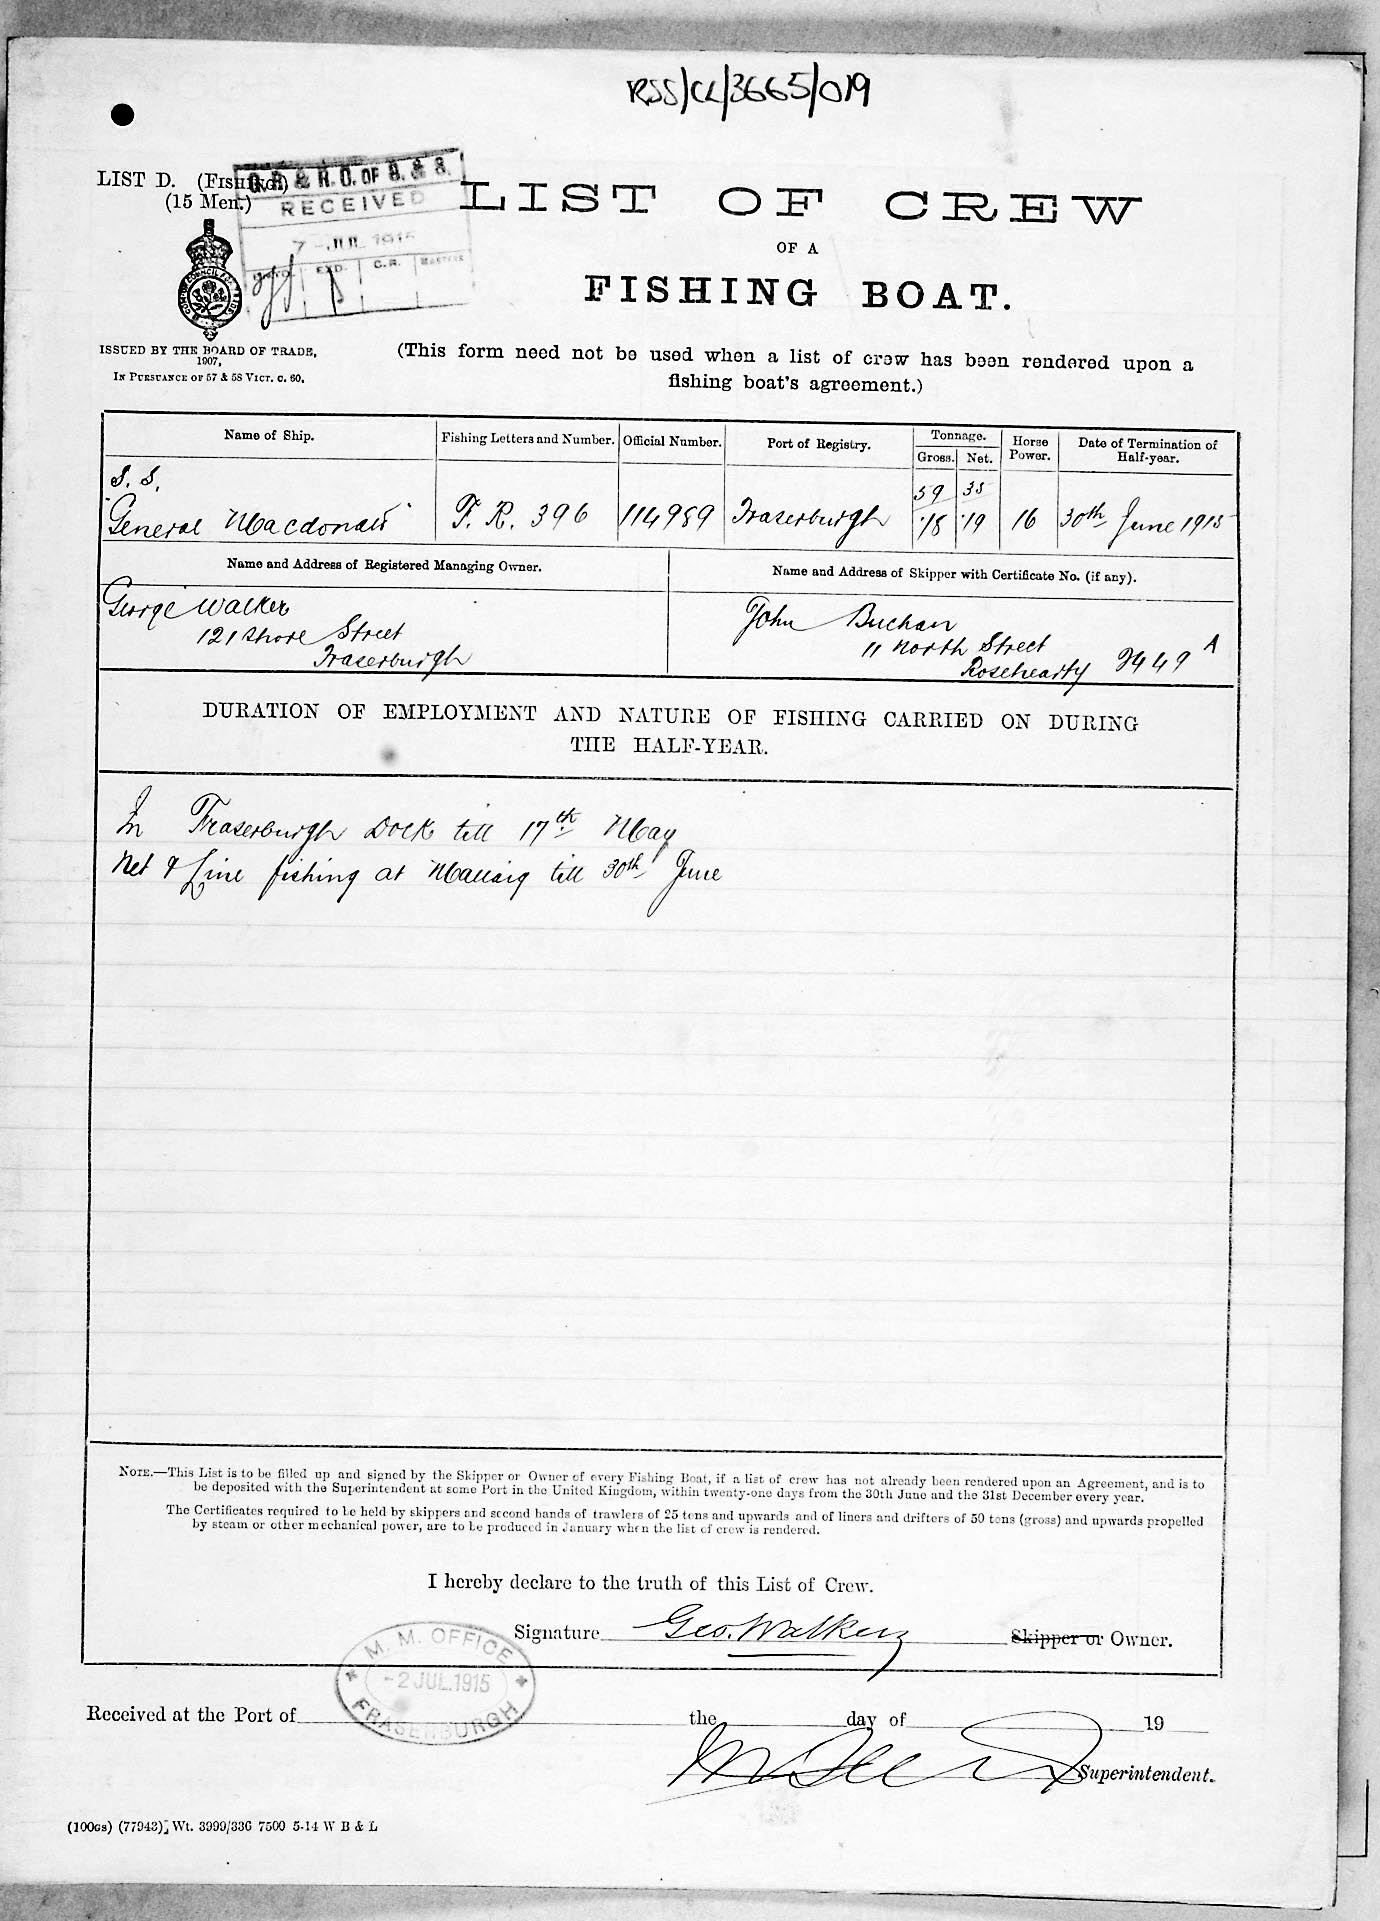 RSS/CL/3665/019
LIST D. (FISHING)
(15 Men.)
G.R. & R.O. OF S. & S.
RECEIVED
7 - JUL 1915
EXD.
C.R.
MASTERS
LIST OF CREW
OF A
FISHING BOAT.
ISSUED BY THE BOARD OF TRADE,
1907,
IN PURSUANCE OF 57 & 58 VICT. C. 60.
(This form need not be used when a list of crew has been rendered upon a
fishing boat's agreement.)
Name of Ship. Fishing Letters and Number. Official Number. Port of Registry. Tonnage. Horse Power. Date of Termination of Half-year.
Gross. Net.
S. S. 59 35
"General Macdonald" F. R. 396 114989 Fraserburgh ·18 ·19 16 30th June 1915
Name and Address of Registered Managing Owner. Name and Address of Skipper with Certificate No. (if any).
George Walker
121 Shore Street
Fraserburgh
John Buchan
11 North Street
Rosehearty 9449 A
DURATION OF EMPLOYMENT AND NATURE OF FISHING CARRIED ON DURING
THE HALF-YEAR.
In Fraserburgh Dock till 17th May
Net & Line fishing at Mallaig till 30th June
NOTE.—This List is to be filled up and signed by the Skipper or Owner of every Fishing Boat, if a list of crew has not already been rendered upon an Agreement, and is to
be deposited with the Superintendent at some Port in the United Kingdom, within twenty-one days from the 30th June and the 31st December every year.
The Certificates required to be held by skippers and second hands of trawlers of 25 tons and upwards and of liners and drifters of 50 tons (gross) and upwards propelled
by steam or other mechanical power, are to be produced in January when the list of crew is rendered.
I hereby declare to the truth of this List of Crew.
Signature Geo. Walker Skipper or Owner.
M. M. OFFICE
-2 JUL.1915
FRASERBURGH
Received at the Port of the day of 19
Superintendent.
(100GS) (77943) Wt. 3999/336 7500 5-14 W B & L